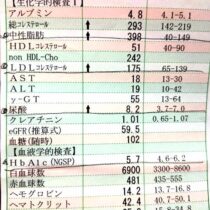 【生化学的検査Ⅰ】
アルブミン 4.8 4.1-5.1
総コレステロール ↑ 293 142-219
中性脂肪 ↑ 398 40-149
HDLコレステロール 51 40-90
non HDL-Cho 242
LDLコレステロール ↑ 175 65-139
AST 18 13-30
ALT 19 10-42
γ-GT 55 13-64
尿酸 ↑ 8.2 3.7-7.0
クレアチニン 1.01 0.65-1.07
eGFR(推算式) 59.5
血糖(随時) 102
【血液学的検査】
HbA1c(NGSP) 5.7 4.6-6.2
白血球数 6900 3300-8600
赤血球数 481 435-555
ヘモグロビン 14.2 13.7-16.8
ヘマトクリット 42.4